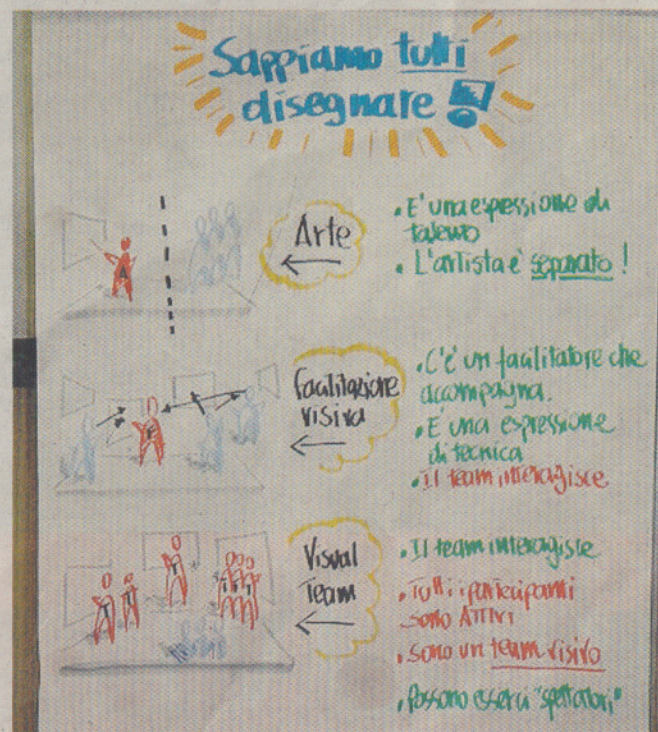 Sappiamo tutti
disegnare !
Arte
• E' una espressione di
talento
• L'artista è separato !
A
Facilitazione
visiva
• C'è un facilitatore che
accompagna.
• È una espressione
di tecnica
• Il team interagisce
F
Visual
Team
• Il team interagisce
• Tutti i partecipanti
sono ATTIVI
• sono un team visivo
• Possono esserci "spettatori"
T T T T T T